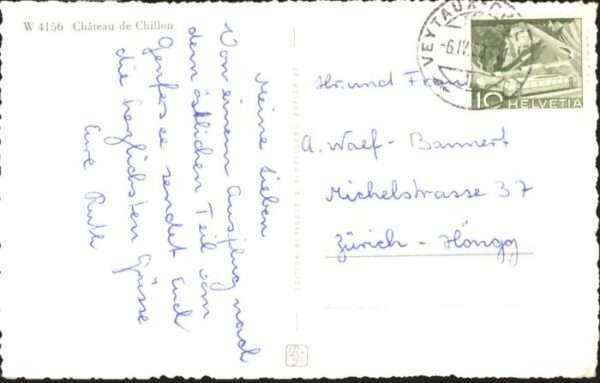 W 4156 Château de Chillon
Meine Lieben
Von einem Ausflug nach
dem östlichen Teil vom
Genfersee sendet Euch
die herzlichsten Grüsse
Eure Ruth
VEYTAUX-
-6.IV.
10 HELVETIA
Hr. und Frau
A. Waef-Bannert
Michelstrasse 37
Zürich-Höngg